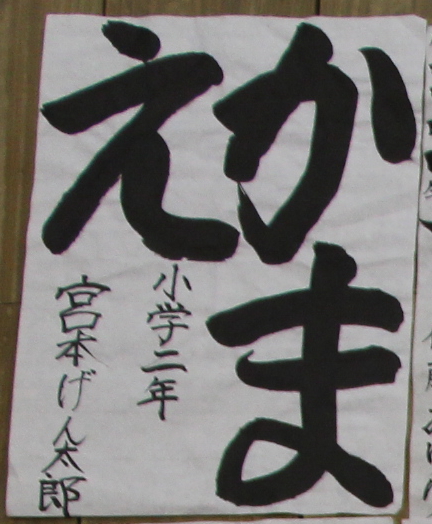 かま
え
小学二年
宮本げん太郎